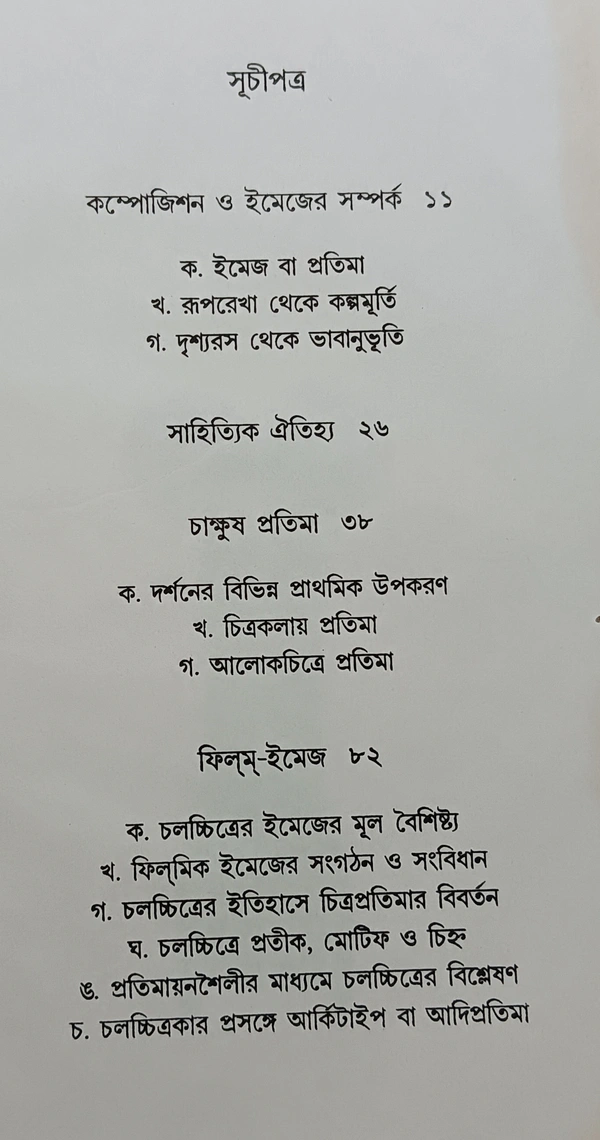 সূচীপত্র
কম্পোজিশন ও ইমেজের সম্পর্ক ১১
ক. ইমেজ বা প্রতিমা
খ. রূপরেখা থেকে কল্পমূর্তি
গ. দৃশ্যরস থেকে ভাবানুভূতি
সাহিত্যিক ঐতিহ্য ২৬
চাক্ষুষ প্রতিমা ৩৮
ক. দর্শনের বিভিন্ন প্রাথমিক উপকরণ
খ. চিত্রকলায় প্রতিমা
গ. আলোকচিত্রে প্রতিমা
ফিল্‌ম্‌-ইমেজ ৮২
ক. চলচ্চিত্রের ইমেজের মূল বৈশিষ্ট্য
খ. ফিল্‌মিক ইমেজের সংগঠন ও সংবিধান
গ. চলচ্চিত্রের ইতিহাসে চিত্রপ্রতিমার বিবর্তন
ঘ. চলচ্চিত্রে প্রতীক, মোটিফ ও চিহ্ন
ঙ. প্রতিমায়নশৈলীর মাধ্যমে চলচ্চিত্রের বিশ্লেষণ
চ. চলচ্চিত্রকার প্রসঙ্গে আর্কিটাইপ বা আদিপ্রতিমা